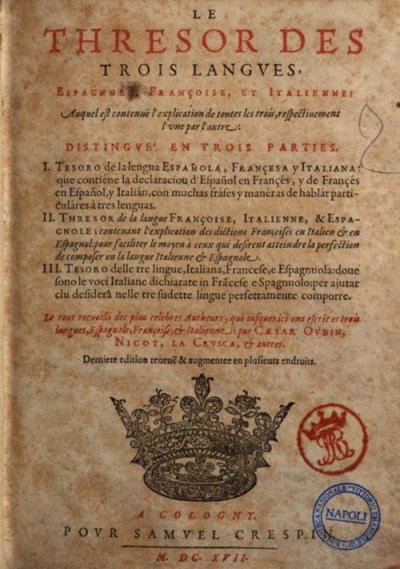 LE
THRESOR DES
TROIS LANGVES,
ESPAGNOLE, FRANÇOISE, ET ITALIENNE:
Auquel est contenuë l'explication de toutes les trois, respectiuement
l'vne par l'autre:
DISTINGVE' EN TROIS PARTIES.
I. TESORO de la lengua ESPAÑOLA, FRANÇESA y ITALIANA:
que contiene la declaracioṇ d'Español en Françés, y de Françés
en Español, y Italián, con muchas fráses y manéras de hablár parti-
culáres à tres lenguas.
II. THRESOR de la langue FRANÇOISE, ITALIENNE, & ESPA-
GNOLE: contenant l'explication des dictions Françoises en Italien & en
Espagnol: pour faciliter le moyen à ceux qui desirent atteindre la perfection
de composer en la langue Italienne & Espagnole.
III. TESORO delle tre lingue, Italiana, Francese, e Espagnuola: doue
sono le voci Italiane dichiarate in Frãcese e Spagnuolo: per ajutar
chi desiderà nelle tre sudette lingue perfettamente comporre.
Le tout recueilli des plus celebres Autheurs, qui iusques ici ont escrit és trois
langues, Espagnole, Françoise, & Italienne: par CÆSAR OVDIN,
NICOT, LA CRVSCA, & autres.
Derniere edition reueuë & augmentee en plusieurs endroits.
A COLOGNY.
POVR SAMVEL CRESPIN.
M. DC. XVII.
NAPOLI